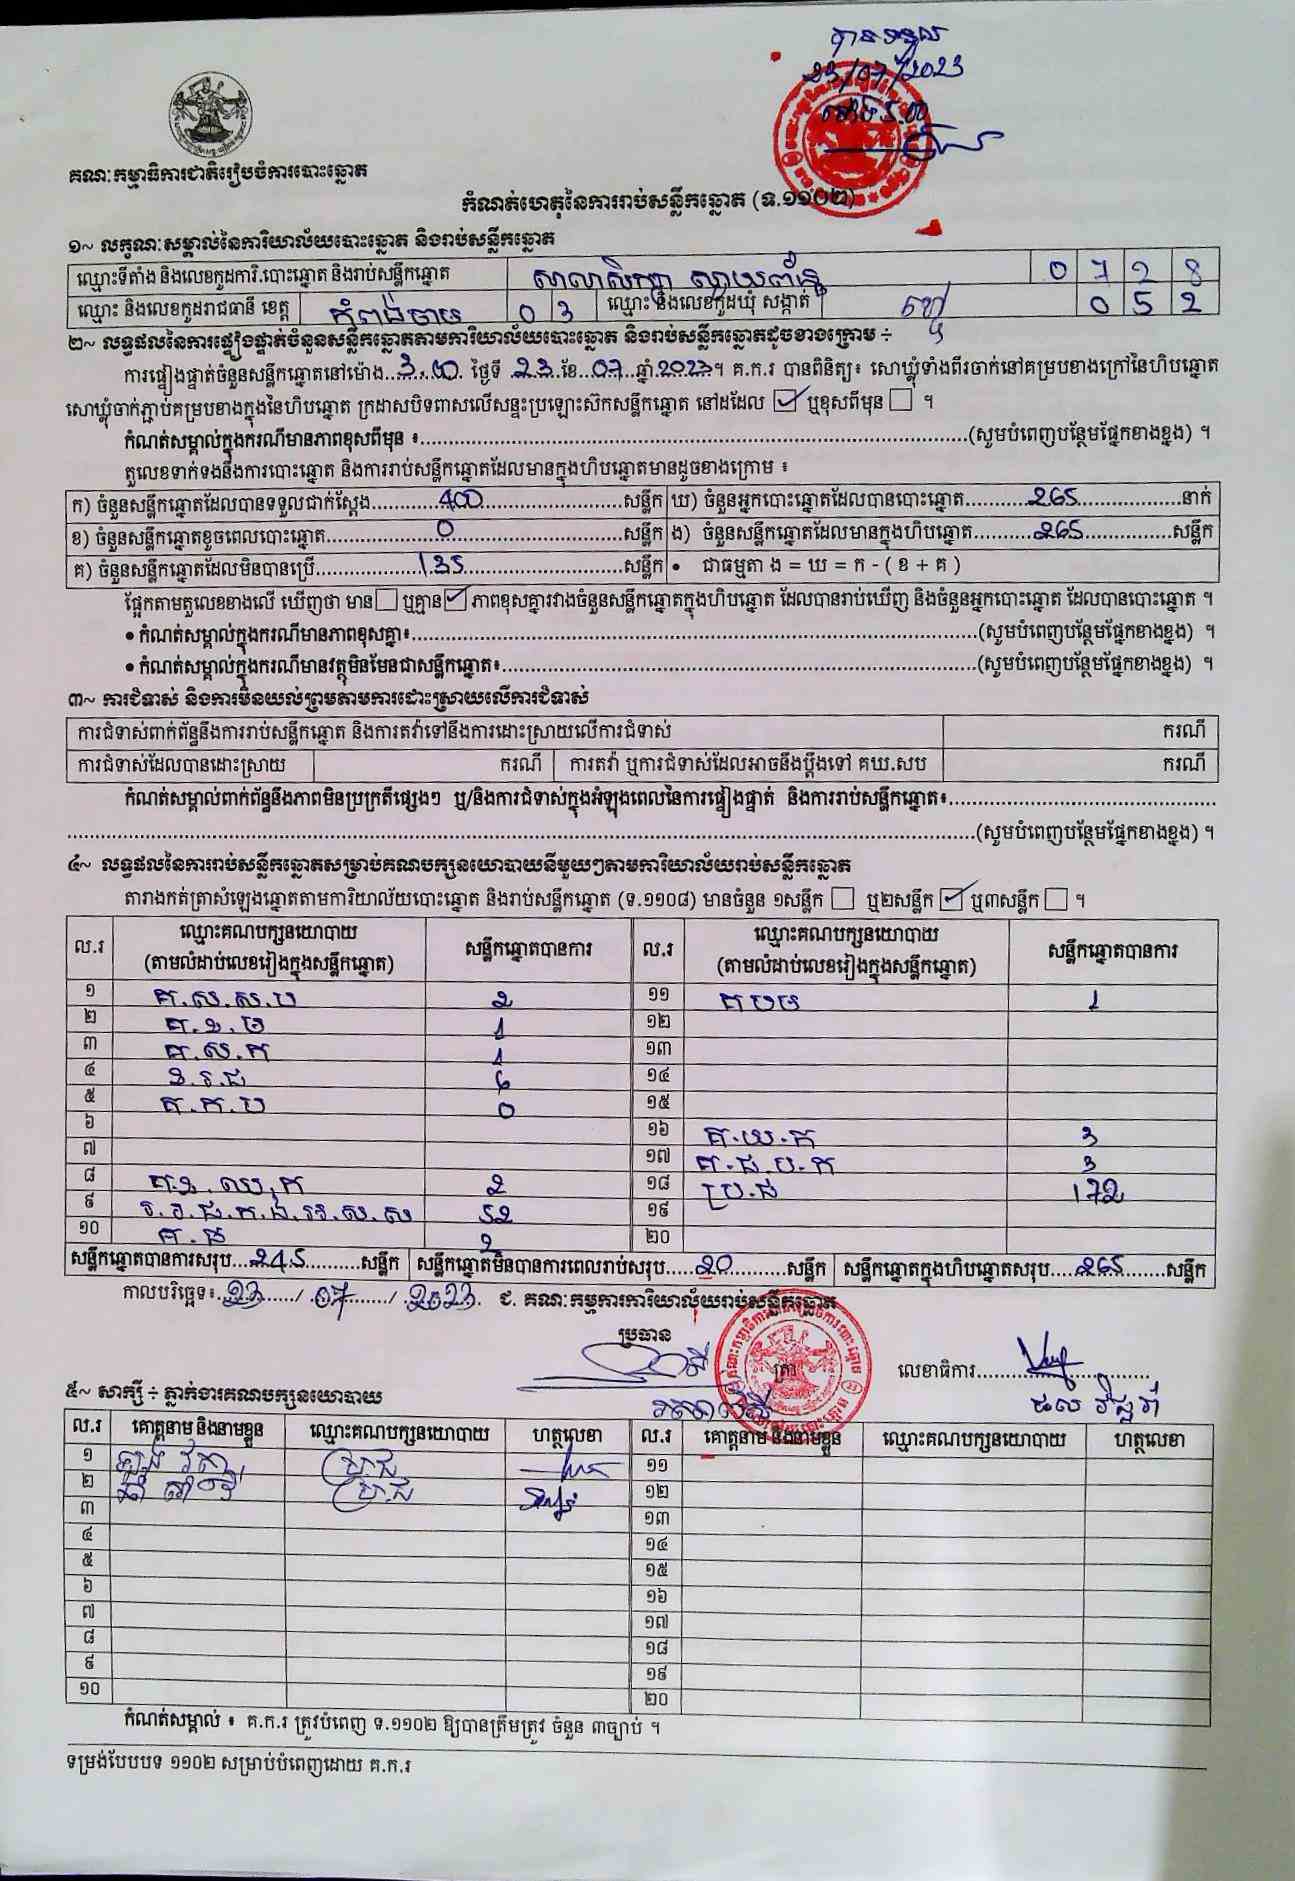 បានទទួល
23/07/2023
គណៈកម្មាធិការជាតិរៀបចំការបោះឆ្នោត
កំណត់ហេតុនៃការរាប់សន្លឹកឆ្នោត (ទ.១១០២)
១~ លក្ខណៈសម្គាល់នៃការិយាល័យបោះឆ្នោត និងរាប់សន្លឹកឆ្នោត
ឈ្មោះទីតាំង និងលេខកូដការិ.បោះឆ្នោត និងរាប់សន្លឹកឆ្នោត សាលាសិក្សា ស្វាយព័ន្ធ 0 7 2 8
ឈ្មោះ និងលេខកូដរាជធានី ខេត្ត កំពង់ចាម 0 3 ឈ្មោះ និងលេខកូដឃុំ សង្កាត់ 0 5 2
២~ លទ្ធផលនៃការផ្ទៀងផ្ទាត់ចំនួនសន្លឹកឆ្នោតតាមការិយាល័យបោះឆ្នោត និងរាប់សន្លឹកឆ្នោតដូចខាងក្រោម ÷
ការផ្ទៀងផ្ទាត់ចំនួនសន្លឹកឆ្នោតនៅម៉ោង...3,00 ថ្ងៃទី 23 ខែ 07 ឆ្នាំ 2023។ គ.ក.រ បានពិនិត្យ៖ សោឃ្លុំទាំងពីរចាក់នៅគម្របខាងក្រៅនៃហិបឆ្នោត
សោឃ្លុំចាក់ភ្ជាប់គម្របខាងក្នុងនៃហិបឆ្នោត ក្រដាសបិទពាសលើសន្ទះប្រឡោះស៊កសន្លឹកឆ្នោត នៅដដែល ☑ ឬខុសពីមុន ☐ ។
កំណត់សម្គាល់ក្នុងករណីមានភាពខុសពីមុន ៖..........(សូមបំពេញបន្ថែមផ្នែកខាងខ្នង) ។
តួលេខទាក់ទងនឹងការបោះឆ្នោត និងការរាប់សន្លឹកឆ្នោតដែលមានក្នុងហិបឆ្នោតមានដូចខាងក្រោម ៖
ក) ចំនួនសន្លឹកឆ្នោតដែលបានទទួលជាក់ស្តែង......400......សន្លឹក ឃ) ចំនួនអ្នកបោះឆ្នោតដែលបានបោះឆ្នោត......265......នាក់
ខ) ចំនួនសន្លឹកឆ្នោតខូចពេលបោះឆ្នោត......0......សន្លឹក ង) ចំនួនសន្លឹកឆ្នោតដែលមានក្នុងហិបឆ្នោត......265......សន្លឹក
គ) ចំនួនសន្លឹកឆ្នោតដែលមិនបានប្រើ......135......សន្លឹក • ជាធម្មតា ង = ឃ = ក - ( ខ + គ )
ផ្អែកតាមតួលេខខាងលើ ឃើញថា មាន ☐ ឬគ្មាន ☑ ភាពខុសគ្នារវាងចំនួនសន្លឹកឆ្នោតក្នុងហិបឆ្នោត ដែលបានរាប់ឃើញ និងចំនួនអ្នកបោះឆ្នោត ដែលបានបោះឆ្នោត ។
• កំណត់សម្គាល់ក្នុងករណីមានភាពខុសគ្នា៖..........(សូមបំពេញបន្ថែមផ្នែកខាងខ្នង) ។
• កំណត់សម្គាល់ក្នុងករណីមានវត្ថុមិនមែនជាសន្លឹកឆ្នោត៖..........(សូមបំពេញបន្ថែមផ្នែកខាងខ្នង) ។
៣~ ការជំទាស់ និងការមិនយល់ព្រមតាមការដោះស្រាយលើការជំទាស់
ការជំទាស់ពាក់ព័ន្ធនឹងការរាប់សន្លឹកឆ្នោត និងការតវ៉ាទៅនឹងការដោះស្រាយលើការជំទាស់ ករណី
ការជំទាស់ដែលបានដោះស្រាយ ករណី ការតវ៉ា ឬការជំទាស់ដែលអាចនឹងប្តឹងទៅ គឃ.សប ករណី
កំណត់សម្គាល់ពាក់ព័ន្ធនឹងភាពមិនប្រក្រតីផ្សេងៗ ឬ/និងការជំទាស់ក្នុងអំឡុងពេលនៃការផ្ទៀងផ្ទាត់ និងការរាប់សន្លឹកឆ្នោត៖..........
..........(សូមបំពេញបន្ថែមផ្នែកខាងខ្នង) ។
៤~ លទ្ធផលនៃការរាប់សន្លឹកឆ្នោតសម្រាប់គណបក្សនយោបាយនីមួយៗតាមការិយាល័យរាប់សន្លឹកឆ្នោត
តារាងកត់ត្រាសំឡេងឆ្នោតតាមការិយាល័យបោះឆ្នោត និងរាប់សន្លឹកឆ្នោត (ទ.១១០៨) មានចំនួន ១សន្លឹក ☐ ឬ២សន្លឹក ☑ ឬ៣សន្លឹក ☐ ។
ល.រ ឈ្មោះគណបក្សនយោបាយ (តាមលំដាប់លេខរៀងក្នុងសន្លឹកឆ្នោត) សន្លឹកឆ្នោតបានការ ល.រ ឈ្មោះគណបក្សនយោបាយ (តាមលំដាប់លេខរៀងក្នុងសន្លឹកឆ្នោត) សន្លឹកឆ្នោតបានការ
១ គ.ស.ស.ប 2 ១១ គ ប ច 1
២ គ.ខ.ម 1 ១២
៣ គ.ស.ក 1 ១៣
៤ ខ.រ.ជ 6 ១៤
៥ គ.ក.ប 0 ១៥
៦ ១៦ គ.យ.ក 3
៧ ១៧ គ.ជ.ប.ក 3
៨ គ.ខ.ឈ.ក 2 ១៨ ប្រ.ជ 172
៩ 52 ១៩
១០ គ.ជ 2 ២០
សន្លឹកឆ្នោតបានការសរុប...245...សន្លឹក សន្លឹកឆ្នោតមិនបានការពេលរាប់សរុប...20...សន្លឹក សន្លឹកឆ្នោតក្នុងហិបឆ្នោតសរុប...265...សន្លឹក
កាលបរិច្ឆេទ៖ 23 / 07 / 2023 ជ. គណៈកម្មការការិយាល័យរាប់សន្លឹកឆ្នោត
ប្រធាន ត្រា លេខាធិការ
៥~ សាក្សី ÷ ភ្នាក់ងារគណបក្សនយោបាយ
ល.រ គោត្តនាម និងនាមខ្លួន ឈ្មោះគណបក្សនយោបាយ ហត្ថលេខា ល.រ គោត្តនាម និងនាមខ្លួន ឈ្មោះគណបក្សនយោបាយ ហត្ថលេខា
១ ប្រ.ជ ១១
២ ប្រ.ជ ១២
៣ ១៣
៤ ១៤
៥ ១៥
៦ ១៦
៧ ១៧
៨ ១៨
៩ ១៩
១០ ២០
កំណត់សម្គាល់ ៖ គ.ក.រ ត្រូវបំពេញ ទ.១១០២ ឱ្យបានត្រឹមត្រូវ ចំនួន ៣ច្បាប់ ។
ទម្រង់បែបបទ ១១០២ សម្រាប់បំពេញដោយ គ.ក.រ